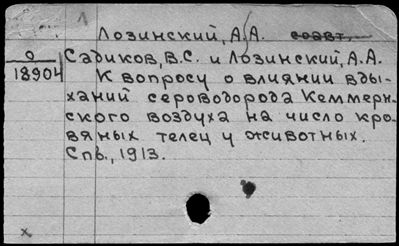 Лозинский, А.А. соавт.
О
18904
Садиков, В.С. и Лозинский, А.А.
К вопросу о влиянии вды-
ханий сероводорода Кеммерн-
ского воздуха на число кро-
вяных телец у животных.
Спб., 1913.
x